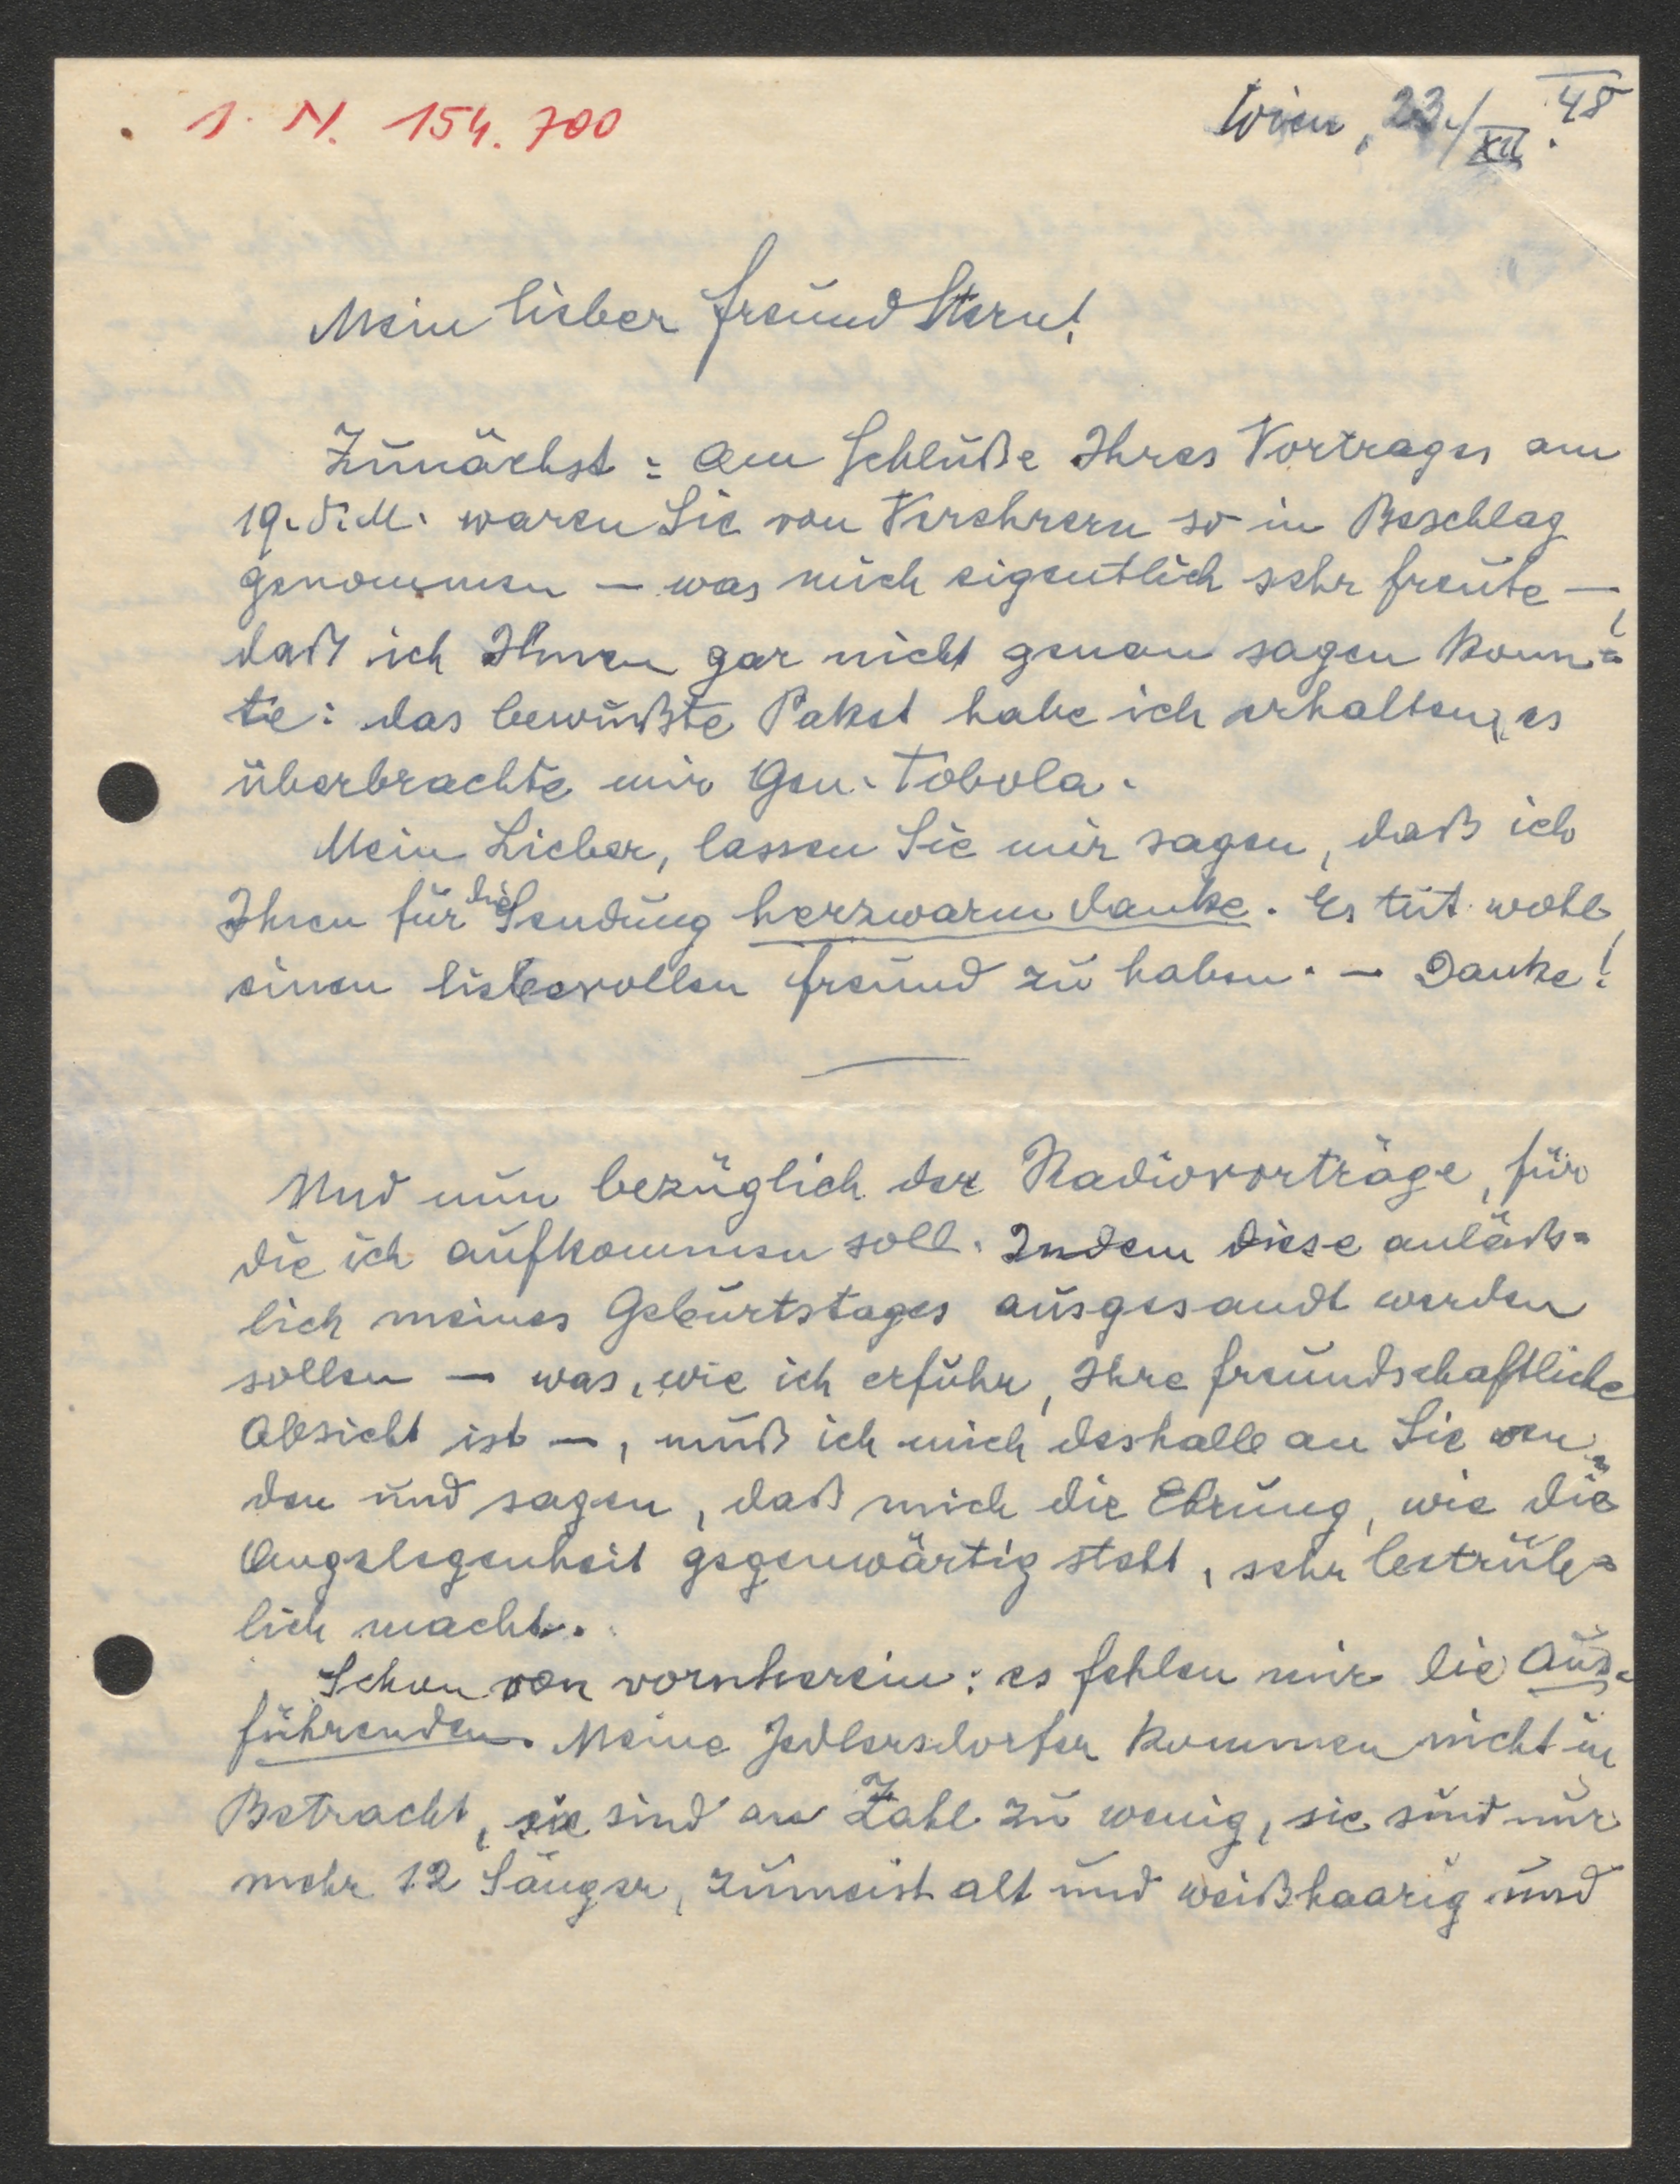 I. N. 154.700
Wien, 23./XII. 48
Mein lieber Freund Stern!
Zunächst: Am Schluße Ihres Vortrages am
19. d. M. waren Sie von Verehrern so in Beschlag
genommen — was mich eigentlich sehr freute —,
daß ich Ihnen gar nicht genau sagen konn=
te: das bewußte Paket habe ich erhalten, es
überbrachte mir Gen. Tobola.
Mein Lieber, lassen Sie mir sagen, daß ich
Ihnen für die Sendung herzwarm danke. Es tut wohl,
einen liebevollen Freund zu haben. — Danke!
Und nun bezüglich der Radiovorträge, für
die ich aufkommen soll. Indem diese anläß=
lich meines Geburtstages ausgesandt werden
sollen — was, wie ich erfuhr, Ihre freundschaftliche
Absicht ist —, muß ich mich deshalb an Sie wen=
den und sagen, daß mich die Ehrung, wie die
Angelegenheit gegenwärtig steht, sehr betrüb=
lich macht.
Schon von vornherein: es fehlen mir die Aus=
führenden. Meine Jedlersdorfer kommen nicht in
Betracht, sie sind an Zahl zu wenig, sie sind nur
mehr 12 Sänger, zumeist alt und weißhaarig und